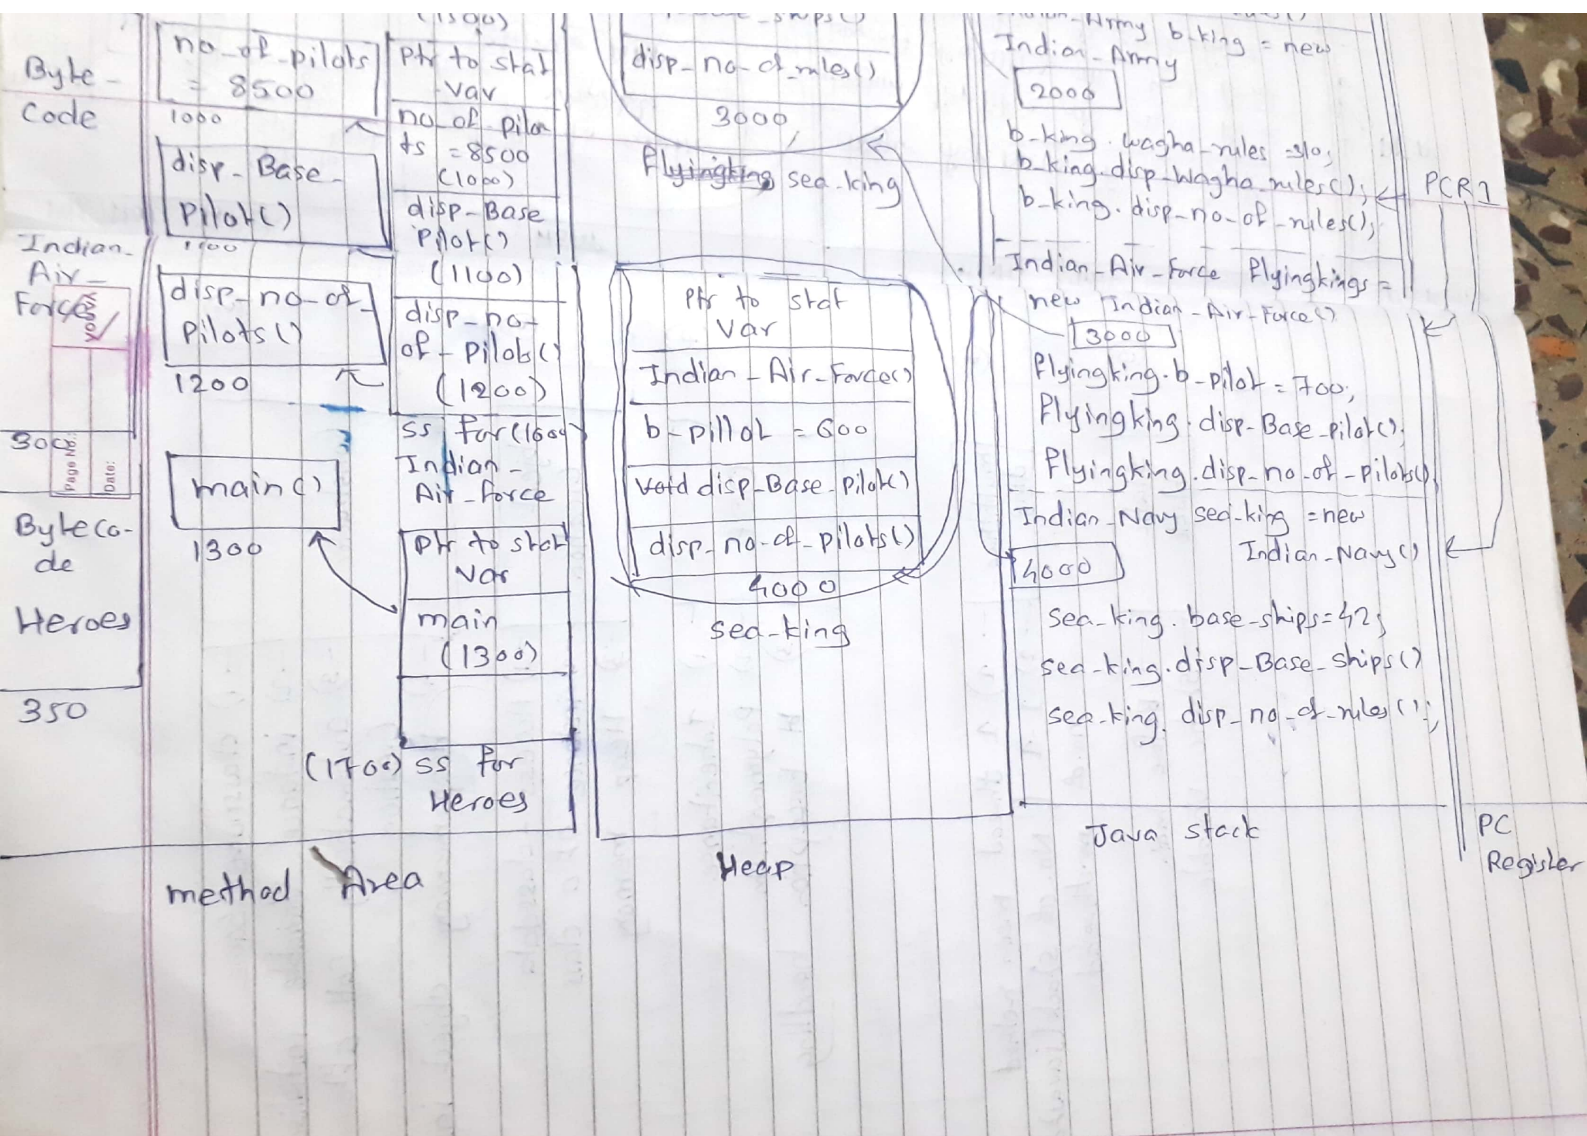 Byte-
Code
Indian-
Air-
Force
YOUVA
300
Page No.:
Date:
Byteco-
de
Heroes
350
no_of_pilots
= 8500
1000
disp-Base-
Pilot()
1100
disp-no-of-
Pilots()
1200
main()
1300
(1500)
Ptr to stat
var
no_of_pilo
ts = 8500
(1000)
disp-Base
Pilot()
(1100)
disp-no-
of-pilots()
(1200)
ss for (1600)
Indian-
Air-force
Ptr to stat
Var
main
(1300)
(1700) ss for
Heroes
method Area
ships()
disp-no-of-rules()
3000
flyingking sea-king
Ptr to stat
Var
Indian-Air-Force()
b-pillot = 600
void disp-Base-Pilot()
disp-no-of-pilots()
4000
sea-king
Heap
Indian-Army b-king = new
Indian-Army
2000
b-king.wagha-rules = 310;
b-king.disp-wagha-rules();
b-king.disp-no-of-rules();
Indian-Air-Force Flyingkings =
new Indian-Air-Force()
3000
Flyingking.b-pilot = 700;
Flyingking.disp-Base-pilot();
Flyingking.disp-no-of-pilots()
Indian-Navy sea-king = new
Indian-Navy()
4000
sea-king.base-ships=42;
sea-king.disp-Base-ships()
sea-king.disp-no-of-rules();
Java stack
PCR1
PC
Register